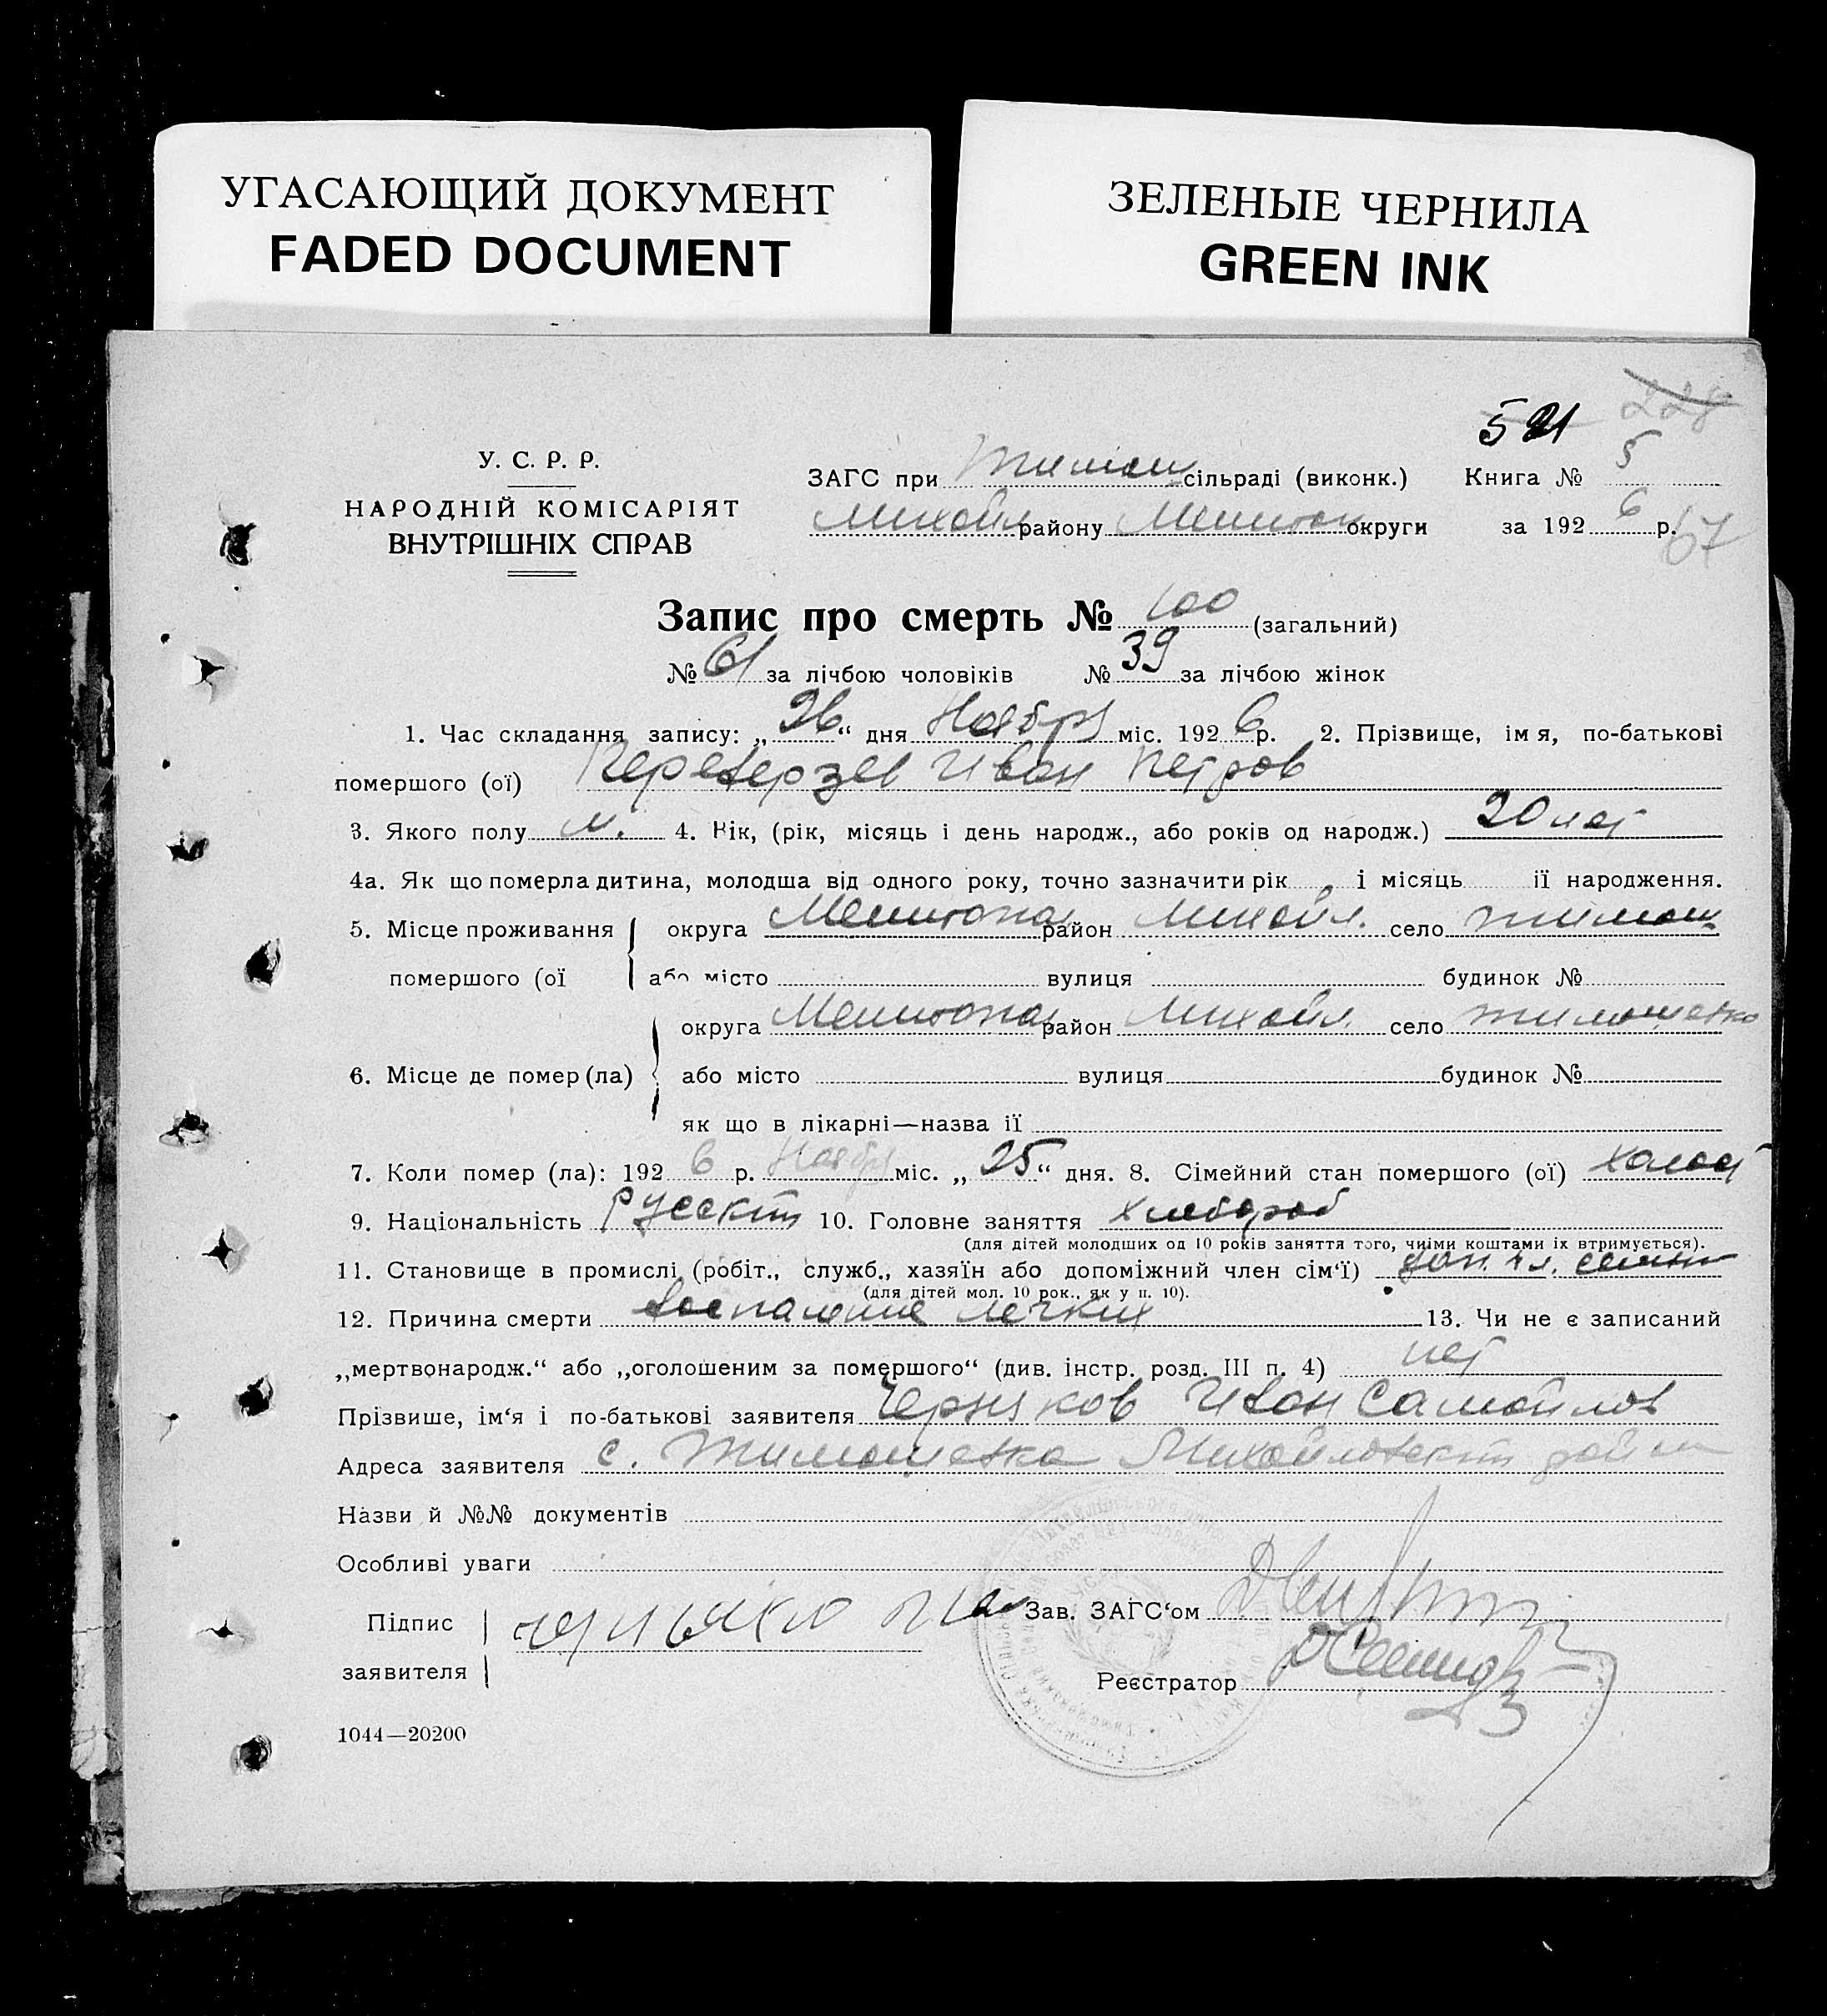 УГАСАЮЩИЙ ДОКУМЕНТ
FADED DOCUMENT
ЗЕЛЕНЫЕ ЧЕРНИЛА
GREEN INK
521 228
У. С. Р. Р.
НАРОДНІЙ КОМІСАРІЯТ
ВНУТРІШНІХ СПРАВ
ЗАГС при Тимош сільраді (виконк.) Книга № 5
Михайл району Мелитоп округи за 192 6 р. 67
Запис про смерть № 100 (загальний)
№ 61 за лічбою чоловіків № 39 за лічбою жінок
1. Час складання запису: „ 26 “ дня Ноября міс. 192 6 р. 2. Прізвище, імя, по-батькові
помершого (ої) Переверзев Иван Петров
3. Якого полу м. 4. Вік, (рік, місяць і день народж., або років од народж.) 20 лет
4а. Як що померла дитина, молодша від одного року, точно зазначити рік і місяць її народження.
5. Місце проживання округа Мелитопол район Михайл. село Тимош
помершого (ої або місто вулиця будинок №
округа Мелитопол район Михайл. село Тимошевко
6. Місце де помер (ла) або місто вулиця будинок №
як що в лікарні—назва її
7. Коли помер (ла): 192 6 р. Ноября міс. „ 25 “ дня. 8. Сімейний стан помершого (ої) холост
9. Національність Русский 10. Головне заняття хлебороб
(для дітей молодших од 10 років заняття того, чиїми коштами їх втримується).
11. Становище в промислі (робіт., служб., хазяїн або допоміжний член сім'ї) доп. чл. семьи
(для дітей мол. 10 рок., як у п. 10).
12. Причина смерти воспаление легких 13. Чи не є записаний
„мертвонародж.“ або „оголошеним за помершого“ (див. інстр. розд. III п. 4) нет
Прізвише, ім'я і по-батькові заявителя Черняков Иван Самойлов
Адреса заявителя с. Тимошевка Михайловский район
Назви й №№ документів
Особливі уваги
Підпис
заявителя
Зав. ЗАГС'ом
Реєстратор
1044—20200